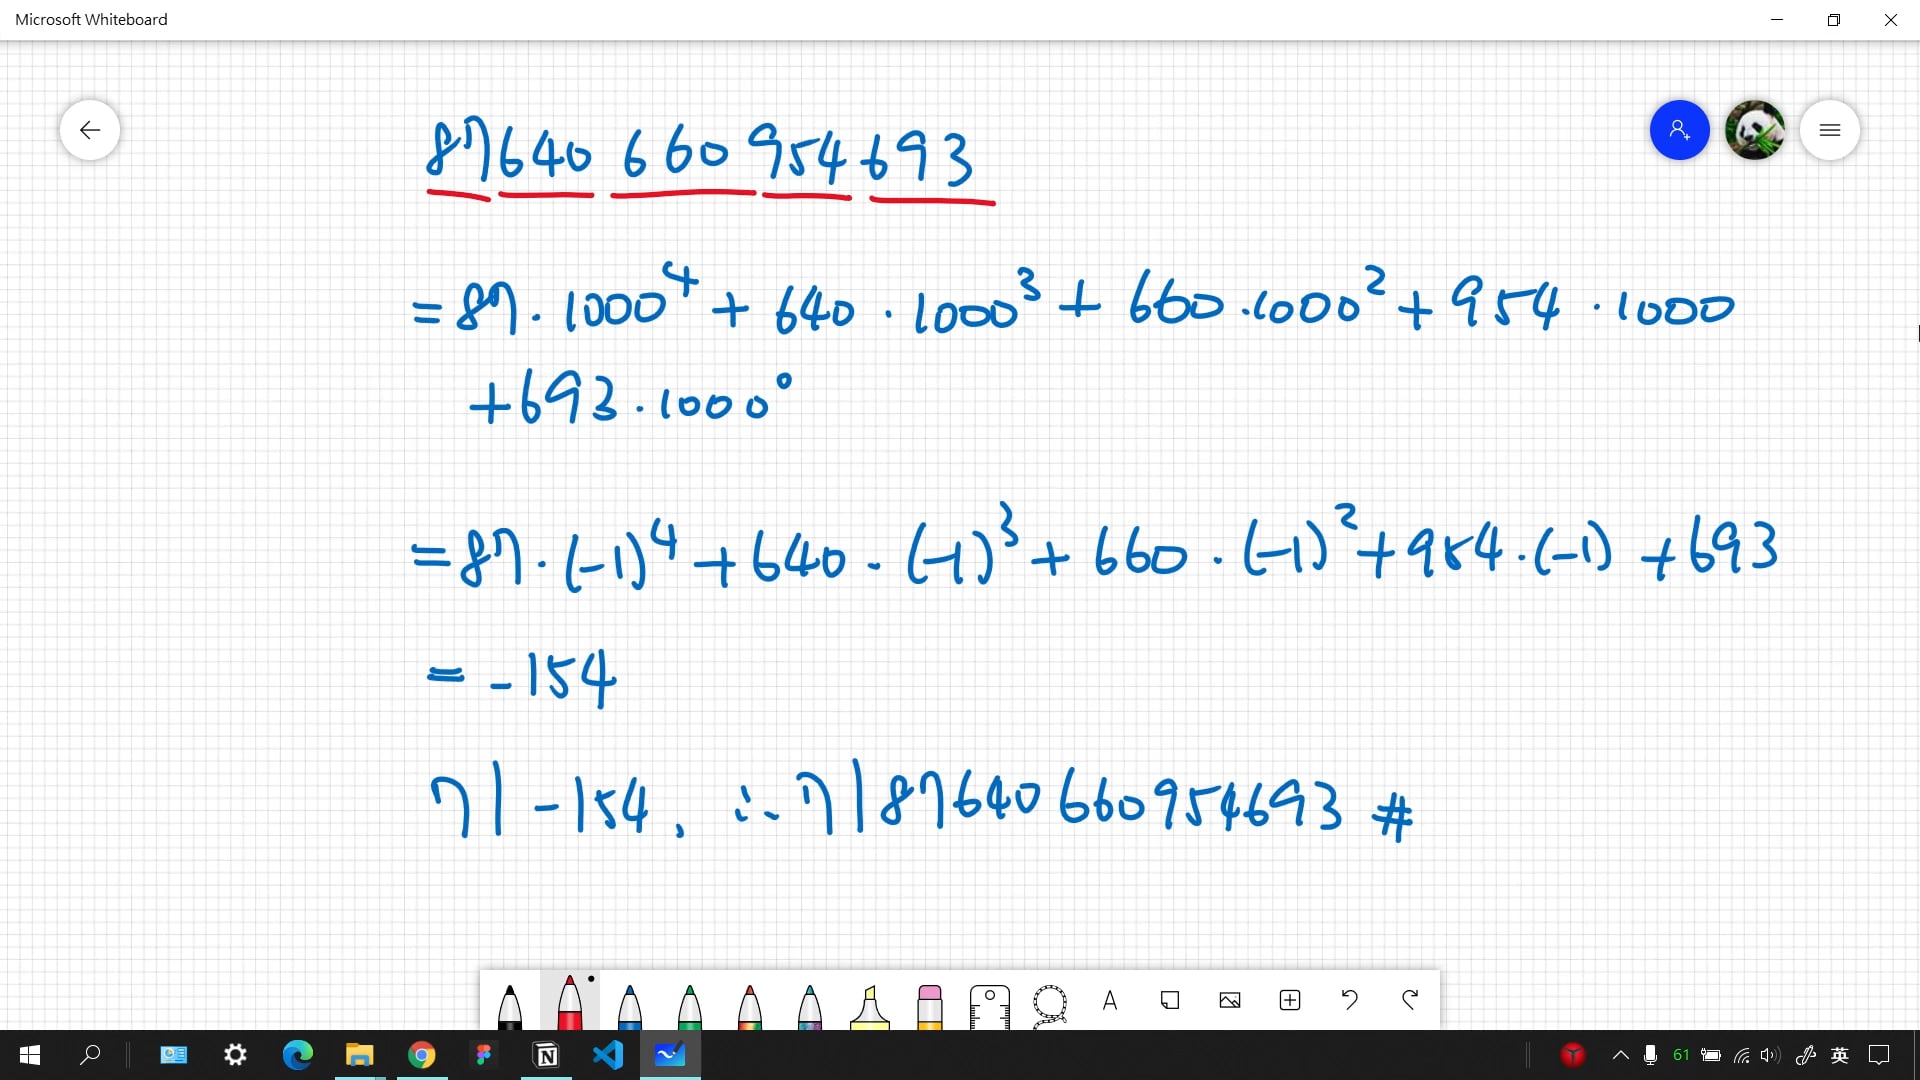 Microsoft Whiteboard
87640660954693
= 87 · 1000⁴ + 640 · 1000³ + 660 · 1000² + 954 · 1000
+ 693 · 1000⁰
= 87 · (-1)⁴ + 640 · (-1)³ + 660 · (-1)² + 954 · (-1) + 693
= -154
7 | -154, ∴ 7 | 87640660954693 #
61 英